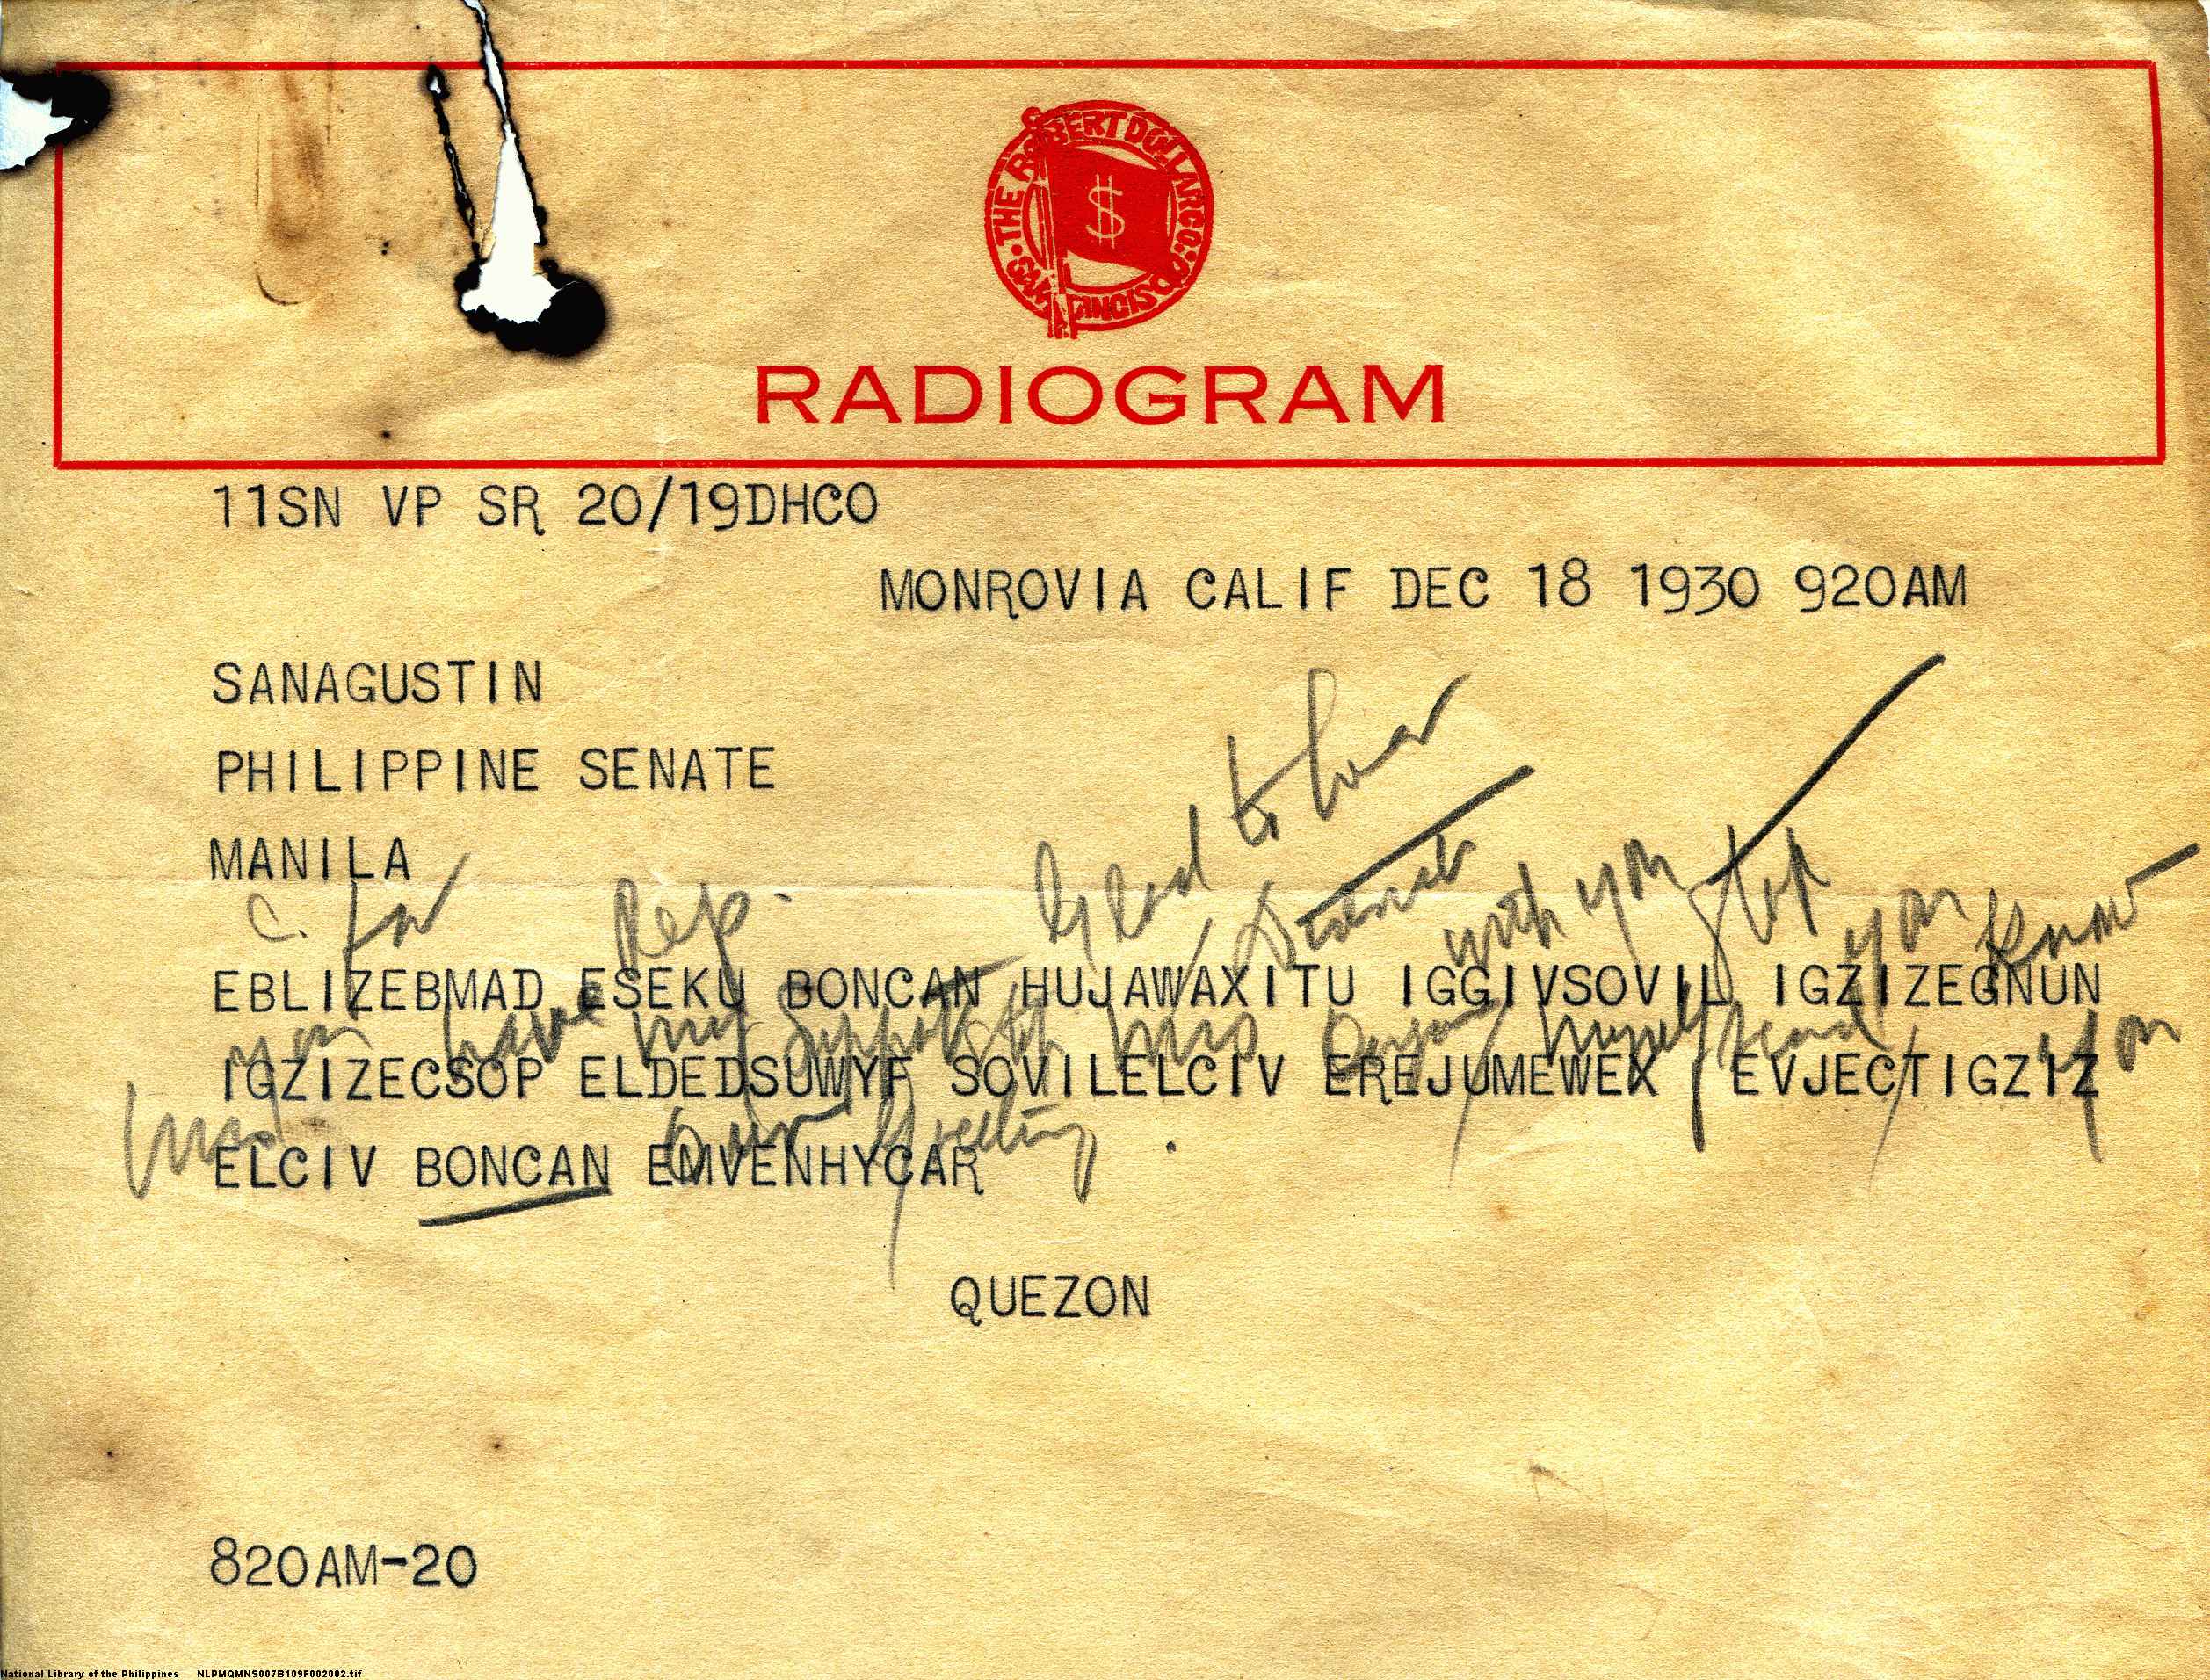 THE ROBERT DOLLAR CO.
SAN FRANCISCO
$
RADIOGRAM
11SN VP SR 20/19DHCO
MONROVIA CALIF DEC 18 1930 920AM
SANAGUSTIN
PHILIPPINE SENATE
MANILA
Glad to hear
C. for Rep. with you stop you know
EBLIZEBMAD ESEKU BONCAN HUJAWAXITU IGGIVSOVIL IGZIZEGNUN
you have my support stop Mrs Quezon myself send you
IGZIZECSOP ELDEDSUWYF SOVILELCIV EREJUMEWEX EVJECTIGZIZ
Mrs our greeting
ELCIV BONCAN EMVENHYCAR
QUEZON
820AM-20
National Library of the Philippines NLPMQMNS007B109F002002.tif